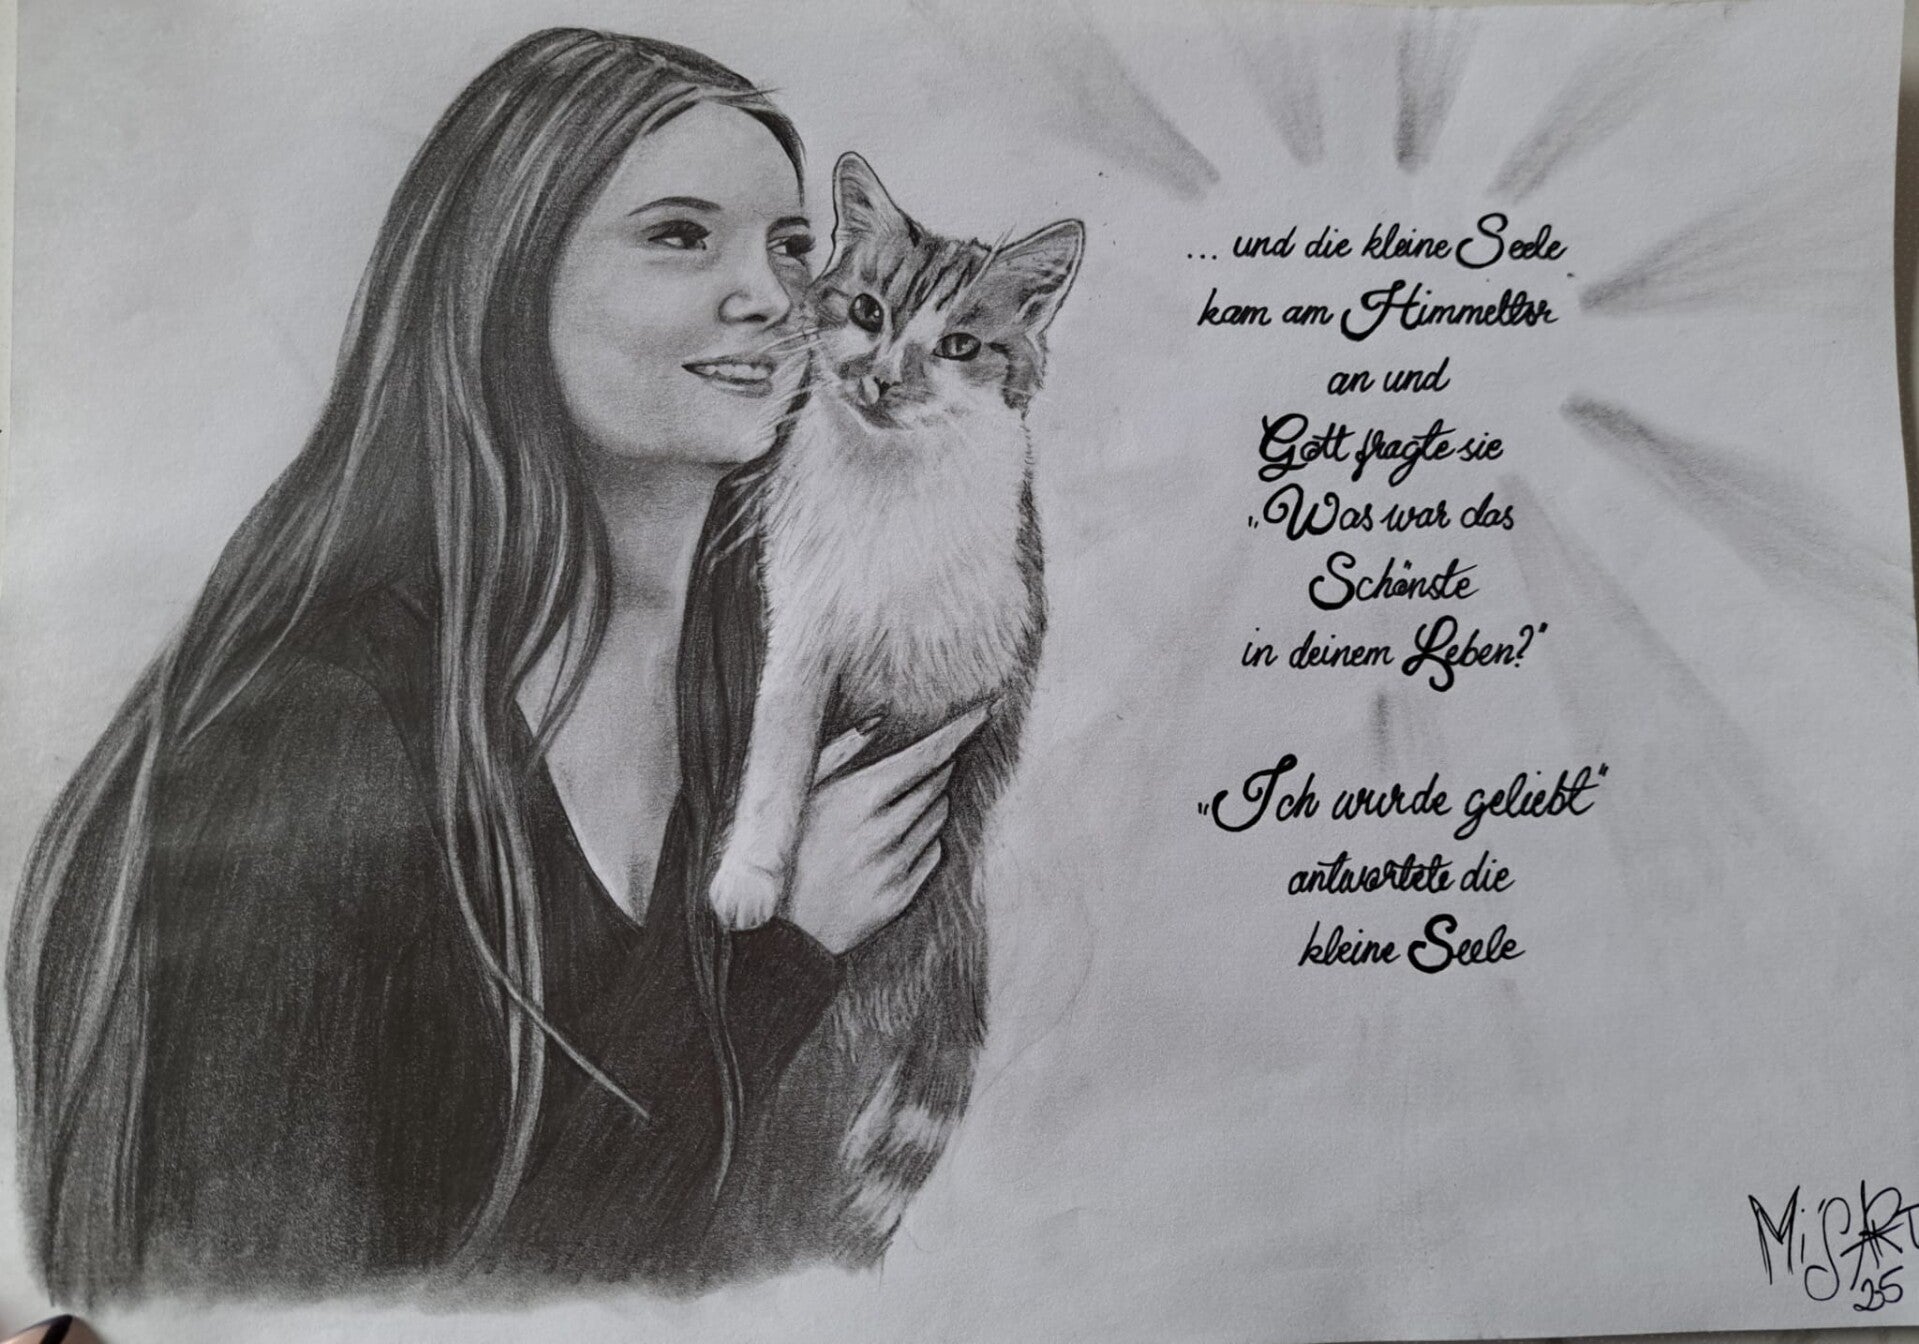 ... und die kleine Seele
kam am Himmelstor
an und
Gott fragte sie
„Was war das
Schönste
in deinem Leben?"
„Ich wurde geliebt"
antwortete die
kleine Seele
Mi'SART
25